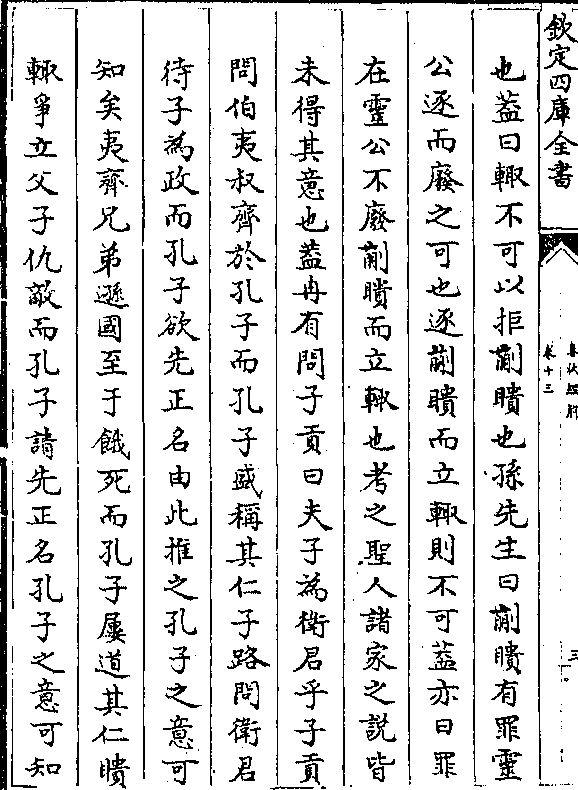 欽定四庫全書
春秋經解
卷十三
三
也葢曰輒不可以拒蒯聵也孫先生曰蒯聵有罪靈
公逐而廢之可也逐蒯聵而立輒則不可葢亦曰罪
在靈公不廢蒯聵而立輒也考之聖人諸家之說皆
未得其意也葢冉有問子貢曰夫子為衛君乎子貢
問伯夷叔齊於孔子而孔子盛稱其仁子路問衛君
待子為政而孔子欲先正名由此推之孔子之意可
知矣夷齊兄弟遜國至于餓死而孔子屢道其仁聵
輒爭立父子仇敵而孔子請先正名孔子之意可知